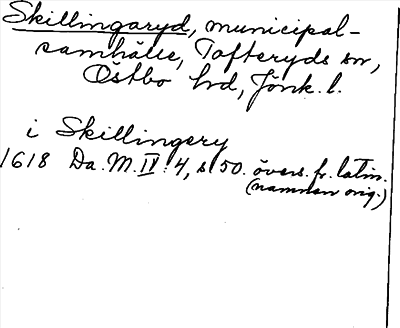 Skillingaryd, municipal-
samhälle, Tofteryds sn,
Östbo hd, Jönk. l.
i Skillingery
1618 Da. M. IV: 4, s 50. övers. fr. latin.
(namnen orig.)